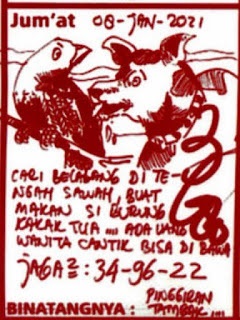 Jum'at 08-JAN-2021
CARI BELALANG DI TE-
NGAH SAWAH, BUAT
MAKAN SI BURUNG
KAKAK TUA .... ADA UANG
WANITA CANTIK BISA DI BAWA
JAGA2 : 34-96-22
BINATANGNYA : PINGGIRAN
TAMBAK ....